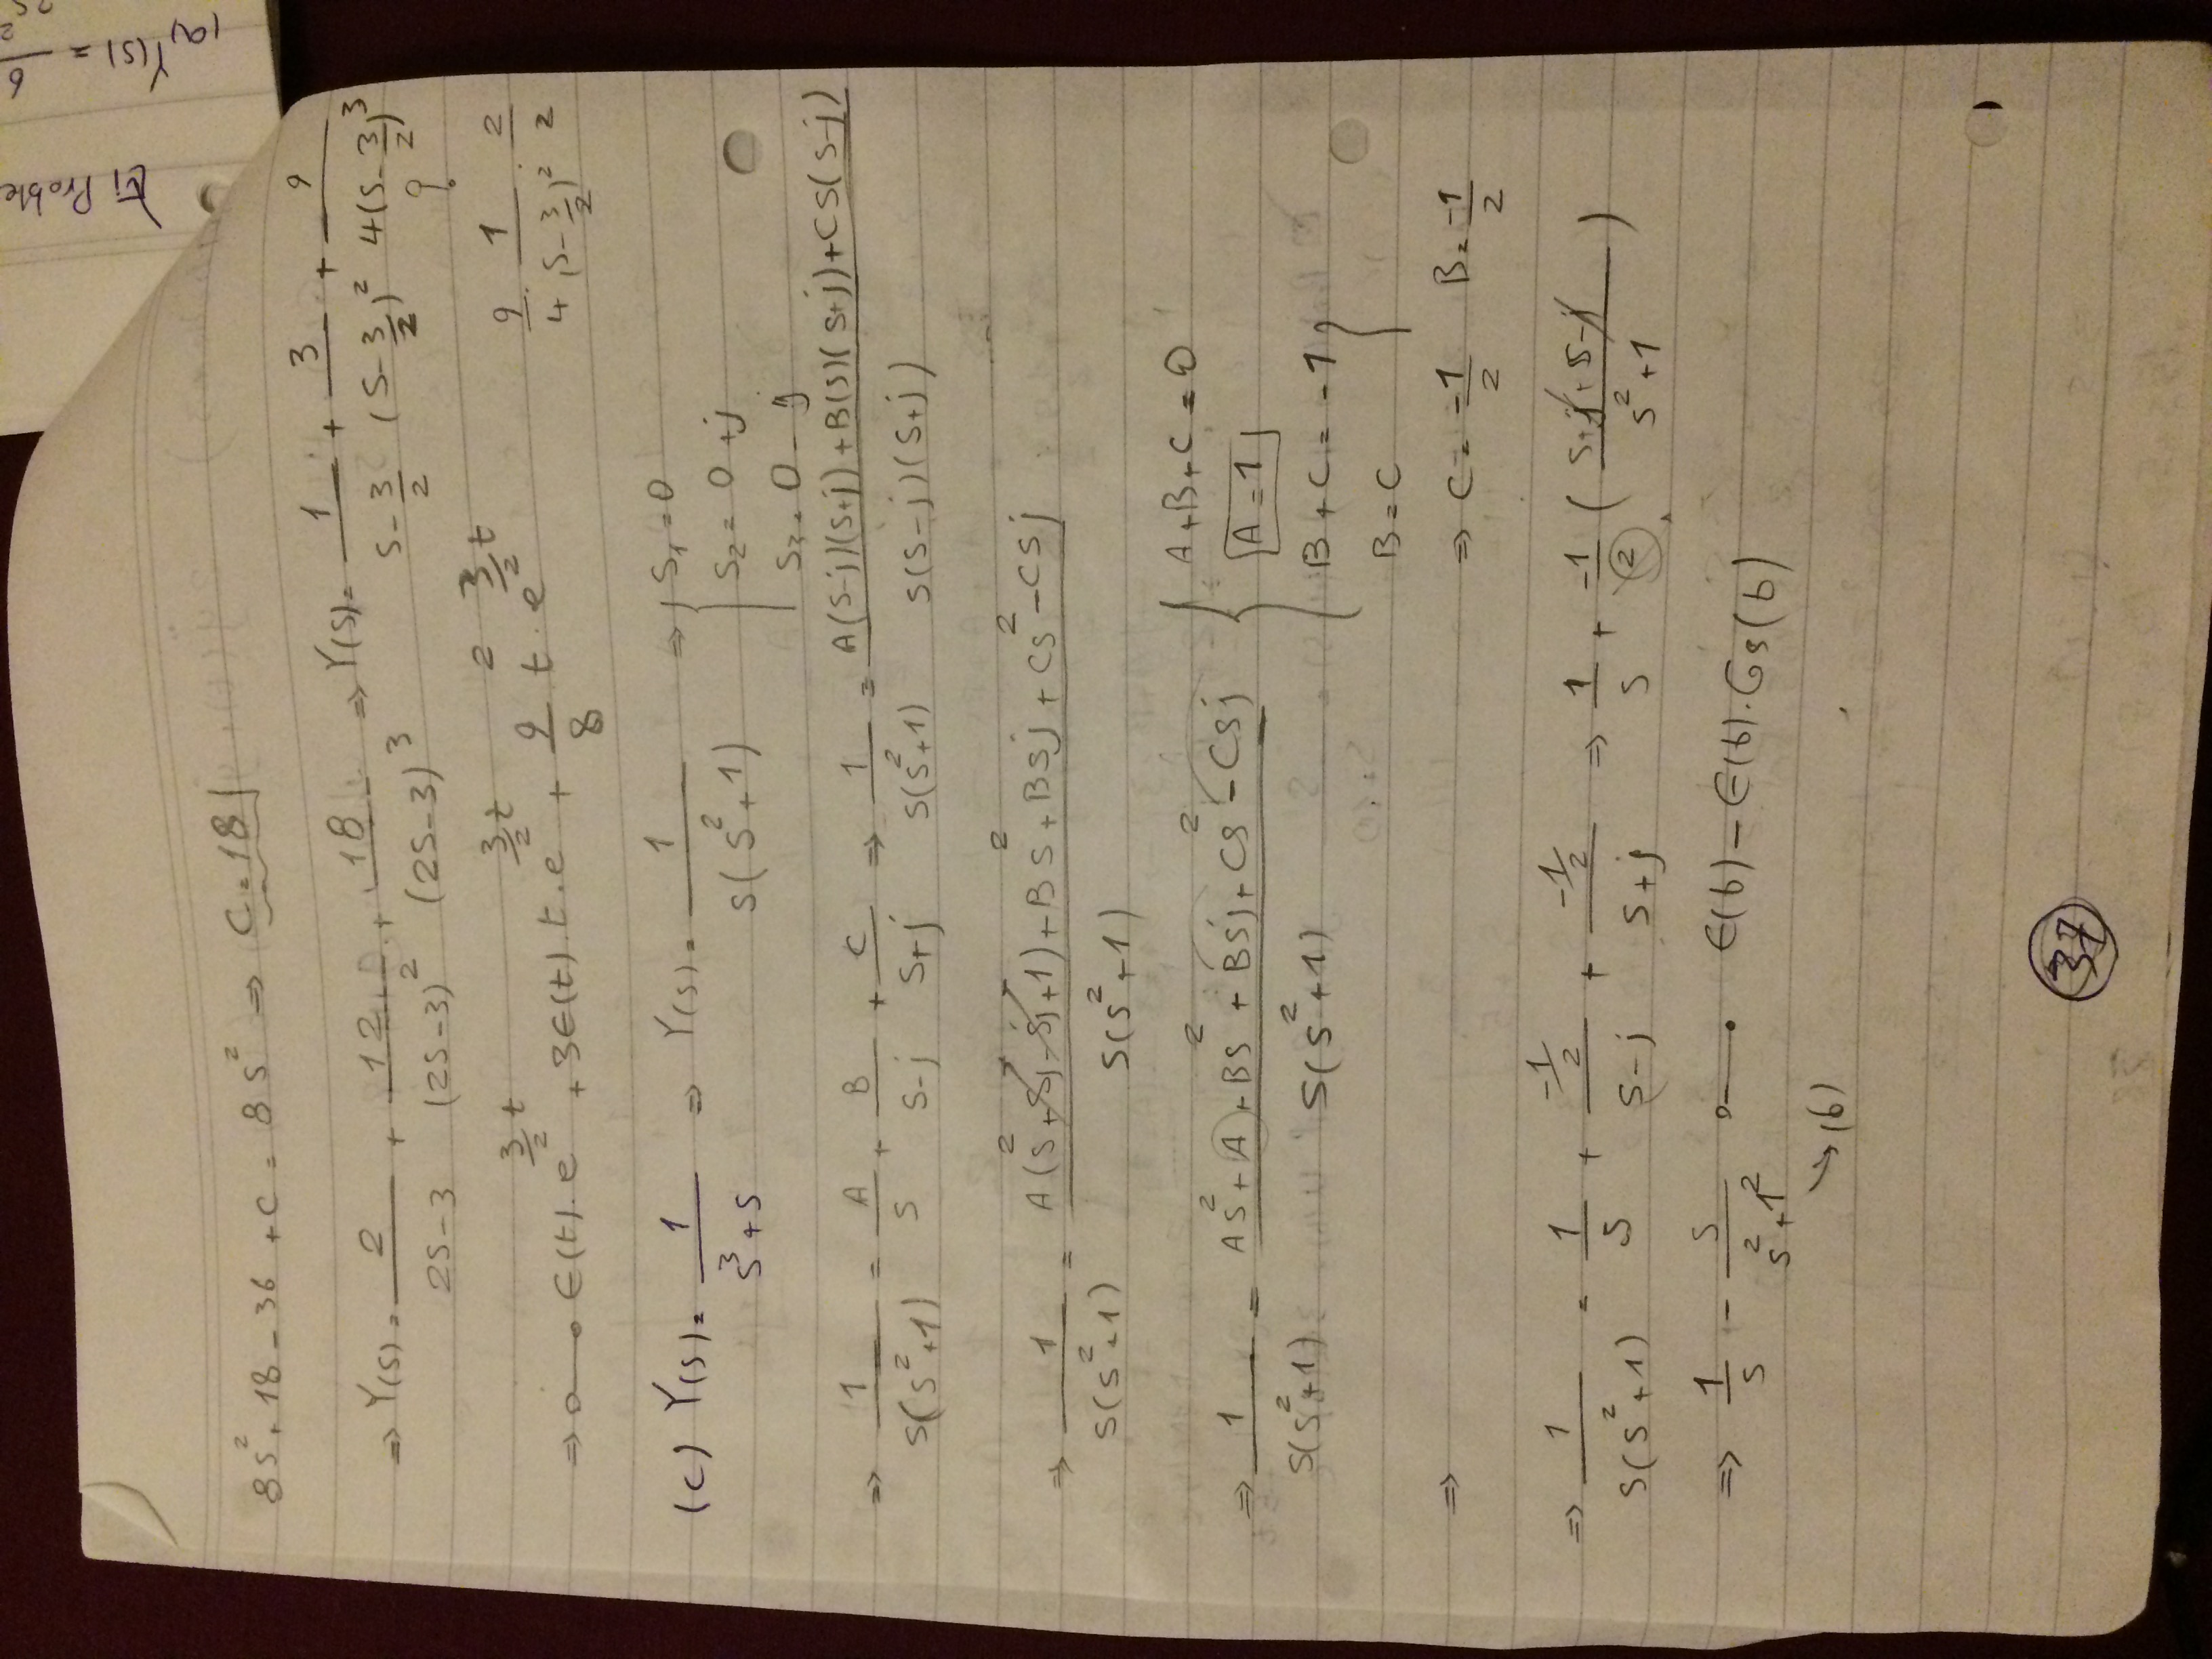 8s² + 18 - 36 + C = 8s² ⇒ C = 18
⇒ Y(s) = 2/(2s-3) + 12/(2s-3)² + 18/(2s-3)³ ⇒ Y(s) = 1/(s-3/2) + 3/(s-3/2)² + 9/(4(s-3/2)³)
?
⇒ ∘—• ϵ(t).e^(3/2 t) + 3ϵ(t).t.e^(3/2 t) + 9/8 t².e^(3/2 t)
9/4 . 1/(s-3/2)² . 2/2
(c) Y(s) = 1/(s³+s) ⇒ Y(s) = 1/(s(s²+1)) ⇒ { S₁ = 0
S₂ = 0 + j
S₃ = 0 - j
⇒ 1/(s(s²+1)) = A/s + B/(s-j) + C/(s+j) ⇒ 1/(s(s²+1)) = (A(s-j)(s+j) + B(s)(s+j) + Cs(s-j))/(s(s-j)(s+j))
⇒ 1/(s(s²+1)) = (A(s² + sj - sj + 1) + Bs² + Bsj + Cs² - Csj)/(s(s²+1))
⇒ 1/(s(s²+1)) = (As² + A + Bs² + Bsj + Cs² - Csj)/(s(s²+1))
{ A + B + C = 0
A = 1
B + C = -1 }
B = C
⇒
⇒ C = -1/2 B = -1/2
⇒ 1/(s(s²+1)) = 1/s + (-1/2)/(s-j) + (-1/2)/(s+j) ⇒ 1/s + -1/2 ((s+j+s-j)/(s²+1))
⇒ 1/s - s/(s²+1²) ∘—• ϵ(t) - ϵ(t).Cos(t)
→ (t)
37
Problem
(a) Y(s) = 6